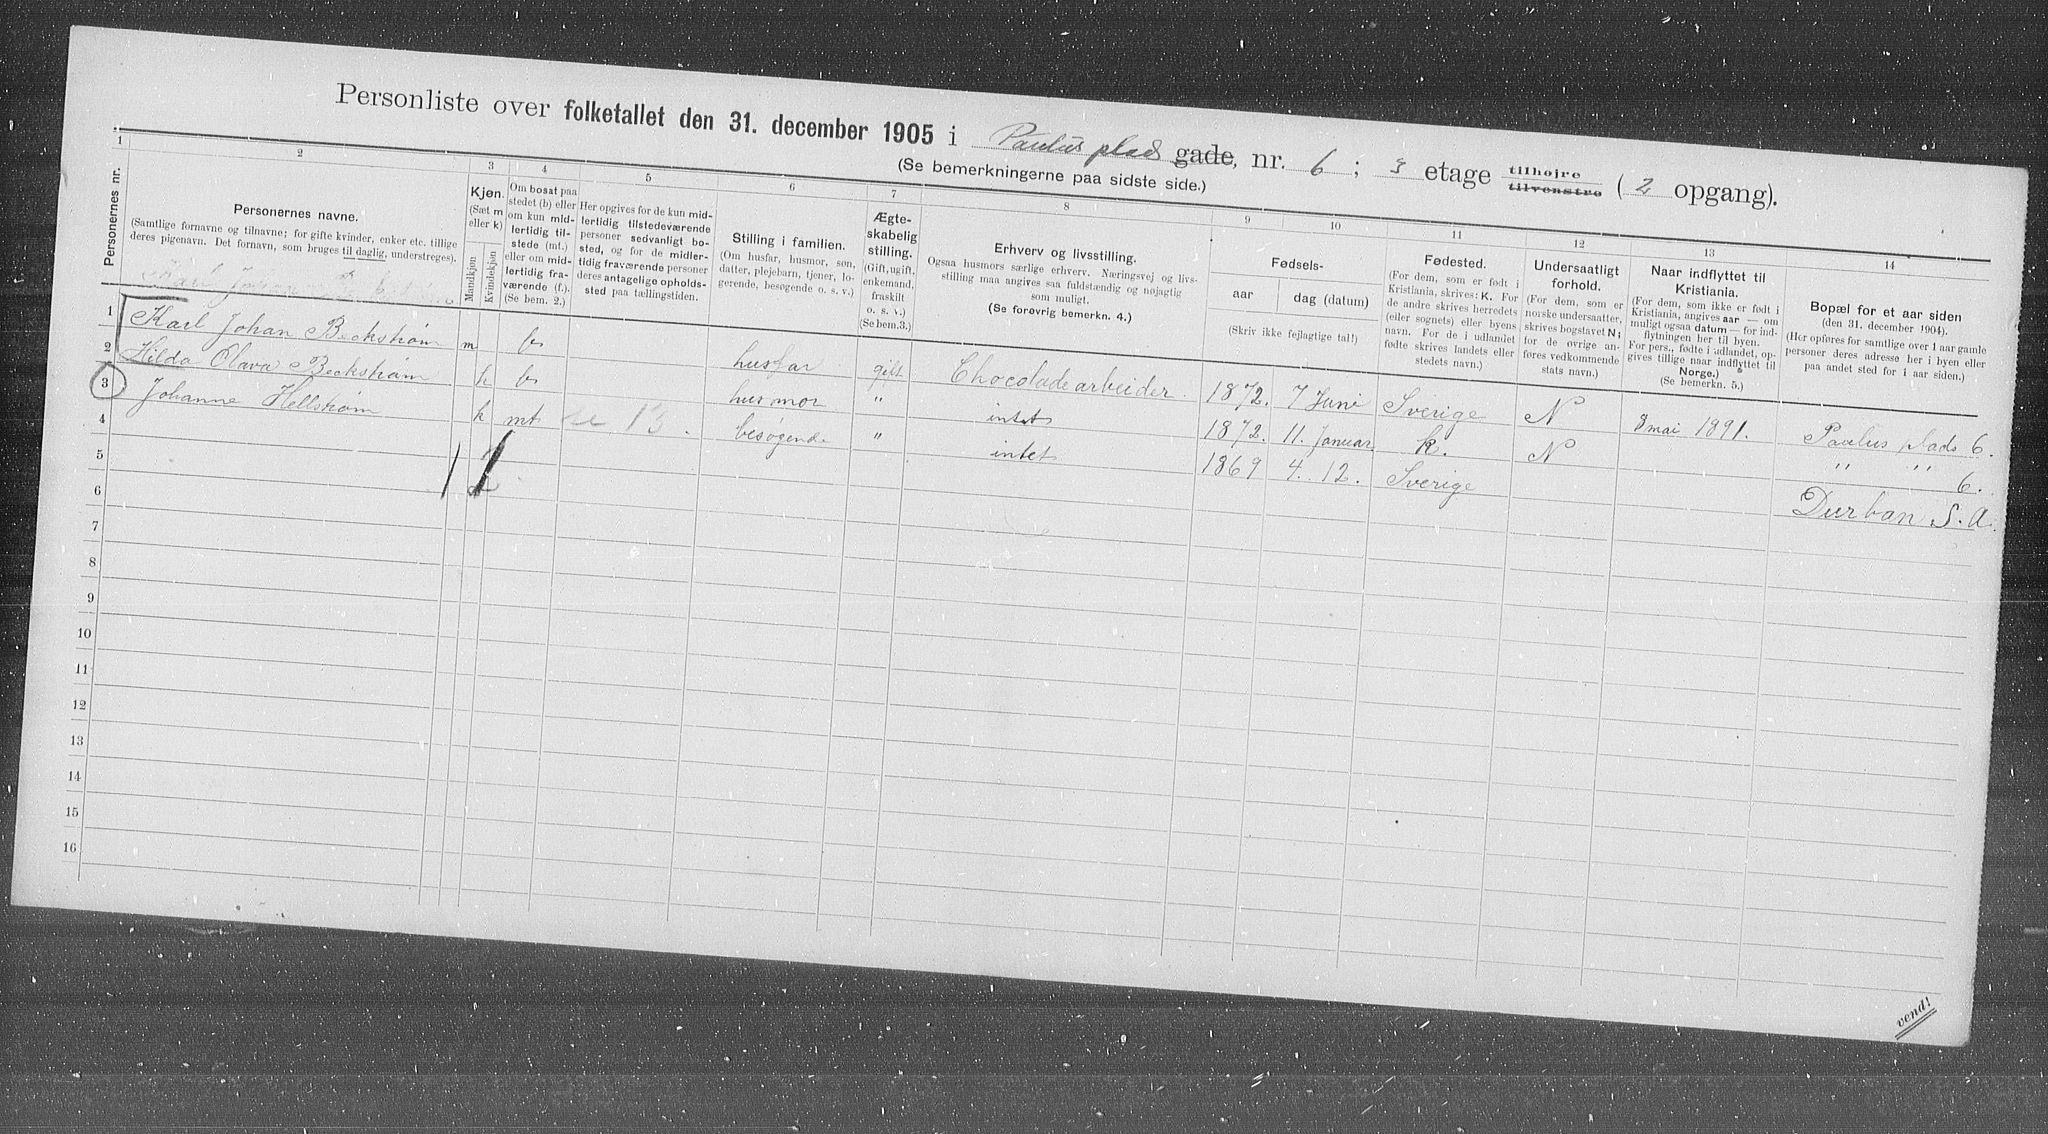 Personliste over folketallet den 31. december 1905 i Paulus plads gade, nr. 6 ; 3 etage tilhøjre tilvenstre ( 2 opgang).
(Se bemerkningerne paa sidste side.)
1 2 3 4 5 6 7 8 9 10 11 12 13 14
Personernes nr.
Personernes navne.
(Samtlige fornavne og tilnavne; for gifte kvinder, enker etc. tillige
deres pigenavn. Det fornavn, som bruges til daglig, understreges).
Kjøn.
(Sæt m
eller k)
Mandkjøn
Kvindekjøn
Om bosat paa
stedet (b) eller
om kun mid-
lertidig til-
stede (mt.)
eller om mid-
lertidig fra-
værende (f.).
(Se bem. 2.)
Her opgives for de kun mid-
lertidig tilstedeværende
personer sedvanligt bo-
sted, og for de midler-
tidig fraværende personer
deres antagelige opholds-
sted paa tællingstiden.
Stilling i familien.
(Om husfar, husmor, søn,
datter, plejebarn, tjener, lo-
gerende, besøgende o. s. v.)
Ægte-
skabelig
stilling.
(Gift, ugift,
enkemand,
fraskilt
o. s. v.)
(Se bem.3.)
Erhverv og livsstilling.
Ogsaa husmors særlige erhverv. Næringsvej og livs-
stilling maa angives saa fuldstændig og nøjagtig
som muligt.
(Se forøvrig bemerkn. 4.)
Fødsels-
aar dag (datum)
(Skriv ikke fejlagtige tal!)
Fødested.
(For dem, som er født i
Kristiania, skrives: K. For
de andre skrives herredets
(eller sognets) eller byens
navn. For de i udlandet
fødte skrives landets eller
stedets navn.)
Undersaatligt
forhold.
(For dem, som er
norske undersaatter,
skrives bogstavet N;
for de øvrige an-
føres vedkommende
stats navn.)
Naar indflyttet til
Kristiania.
(For dem, som ikke er født i
Kristiania, angives aar — om
muligt ogsaa datum — for ind-
flytningen her til byen.
For pers., fødte i udlandet, op-
gives tillige naar indflyttet til
Norge.)
(Se bemerkn. 5.)
Bopæl for et aar siden
(den 31. december 1904).
(Her opføres for samtlige over 1 aar gamle
personer deres adresse her i byen eller
paa andet sted for 1 aar siden.)
Karl Johan
1 Karl Johan Beckstrøm m b husfar gift Chocoladearbeider. 1872. 7 Juni Sverige N 8 mai 1891. Paulus plads 6.
2 Hilda Olava Beckstrøm k b husmor " intet 1872. 11. Januar k. N " " 6.
3 Johanne Hellstrøm k mt se 13. besøgende " intet 1869 4. 12. Sverige Durban S. A.
4
5
6
7
8
9
10
11
12
13
14
15
16
vend!